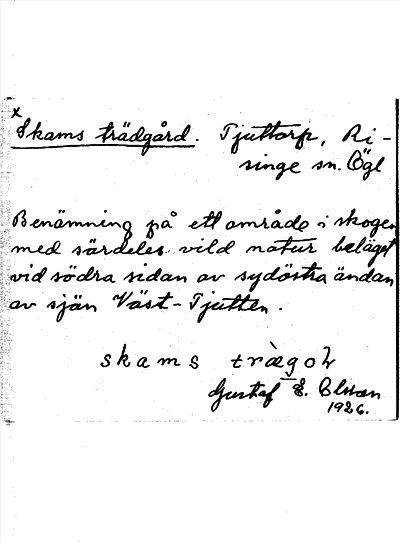 x
Skams trädgård. Tjuttorp, Ri-
singe sn. Ögl
Benämning på ett område i skogen
med särdeles vild natur beläget
vid södra sidan av sydöstra ändan
av sjön Väst-Tjutten.
skams
Gustaf E. Olsson
1926.